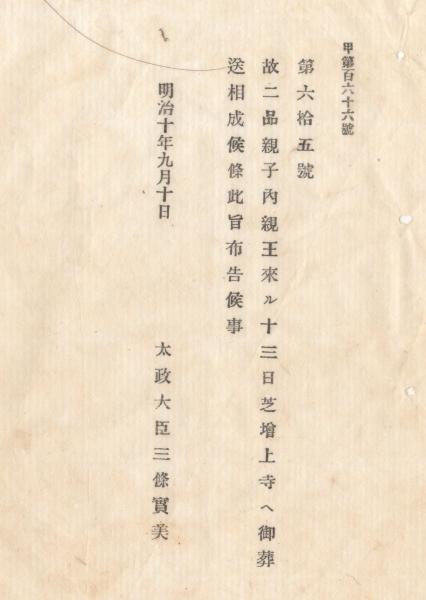 甲第百六十六號
第六拾五號
故二品親子內親王來ル十三日芝增上寺ヘ御葬
送相成候條此旨布告候事
明治十年九月十日
太政大臣三條實美